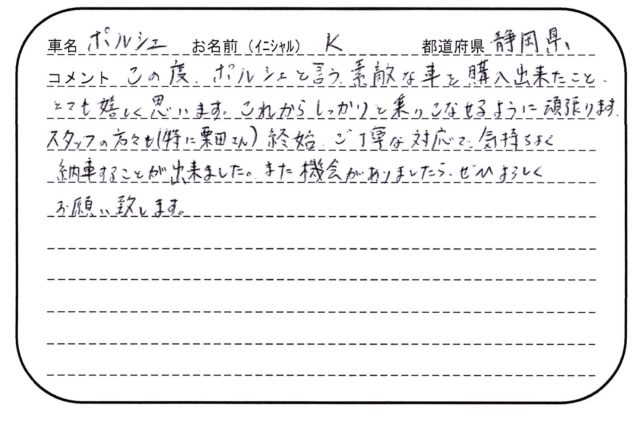 車名 ポルシェ お名前（ｲﾆｼｬﾙ） K 都道府県 静岡県
コメント この度、ポルシェと言う素敵な車を購入出来たこと、
とても嬉しく思います。これからしっかりと乗りこなせるように頑張ります。
スタッフの方々も(特に栗田さん) 終始、ご丁寧な対応で、気持ちよく
納車することが出来ました。また機会がありましたら、ぜひよろしく
お願い致します。